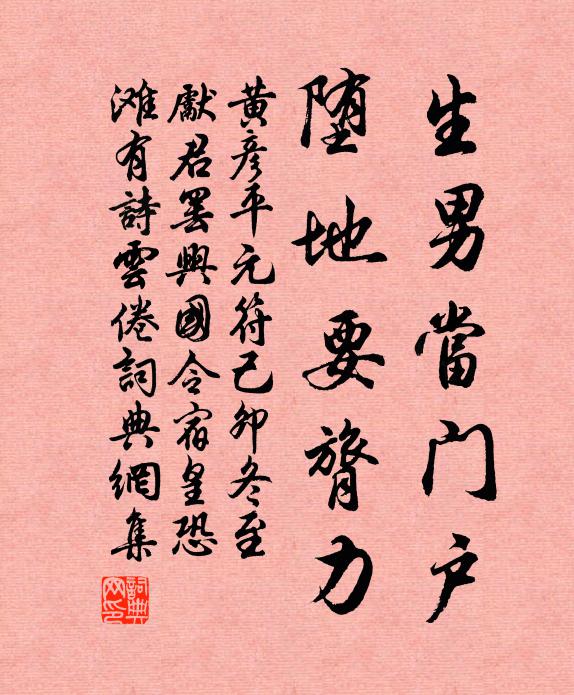 生男當門户
堕地要膂力
黄彦平元符己卯冬至
獻君罷興國令宿皇恐
滩有詩雲倦詞典網集
詞典網印